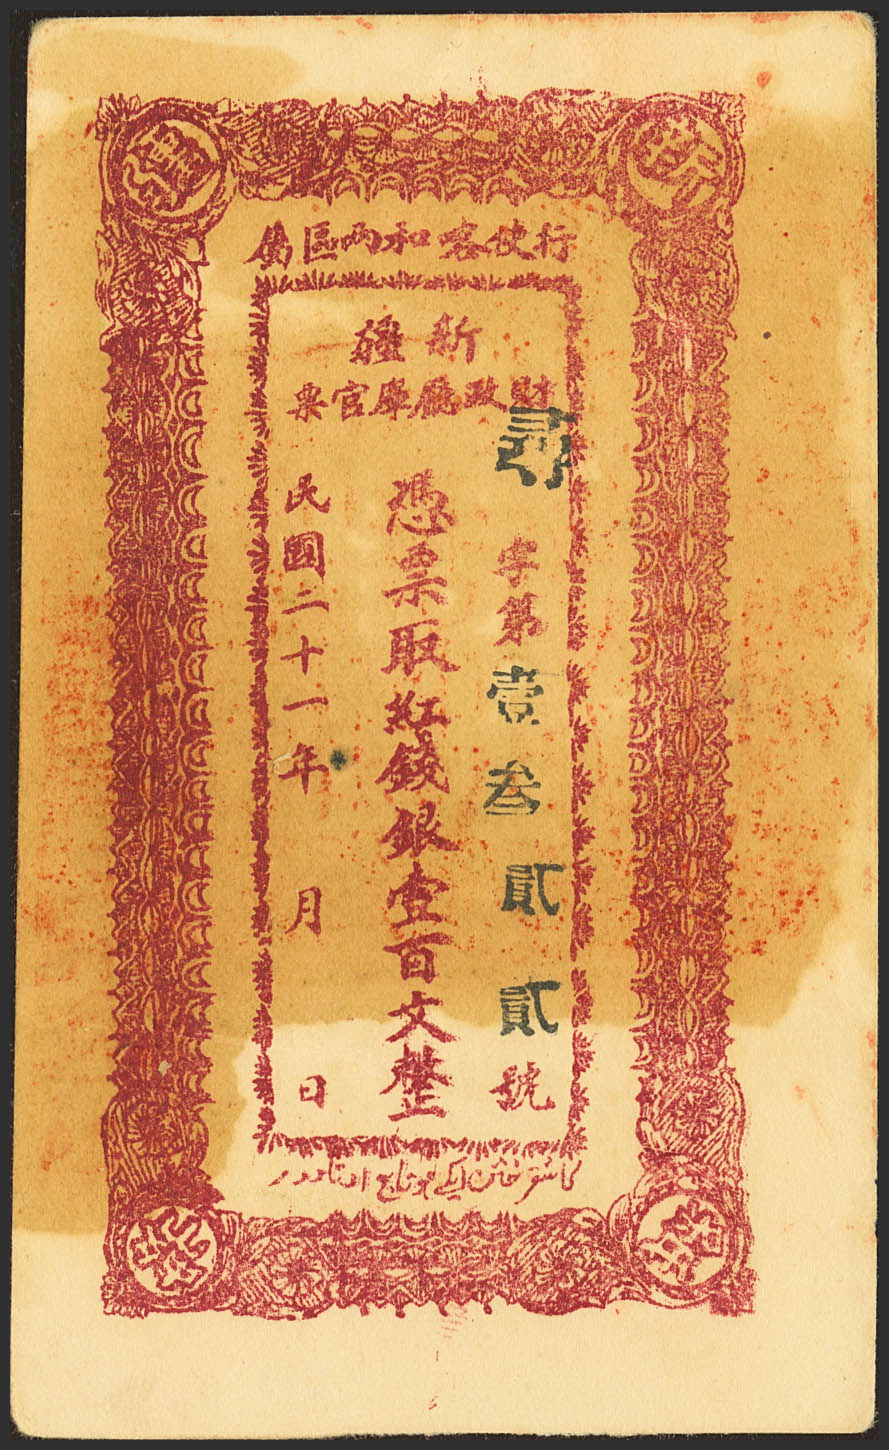 行使喀和两區屬
新疆
財政廳庫官票
尋字第壹叁貳貳號
憑票取紅錢銀壹百文整
民國二十一年 月 日